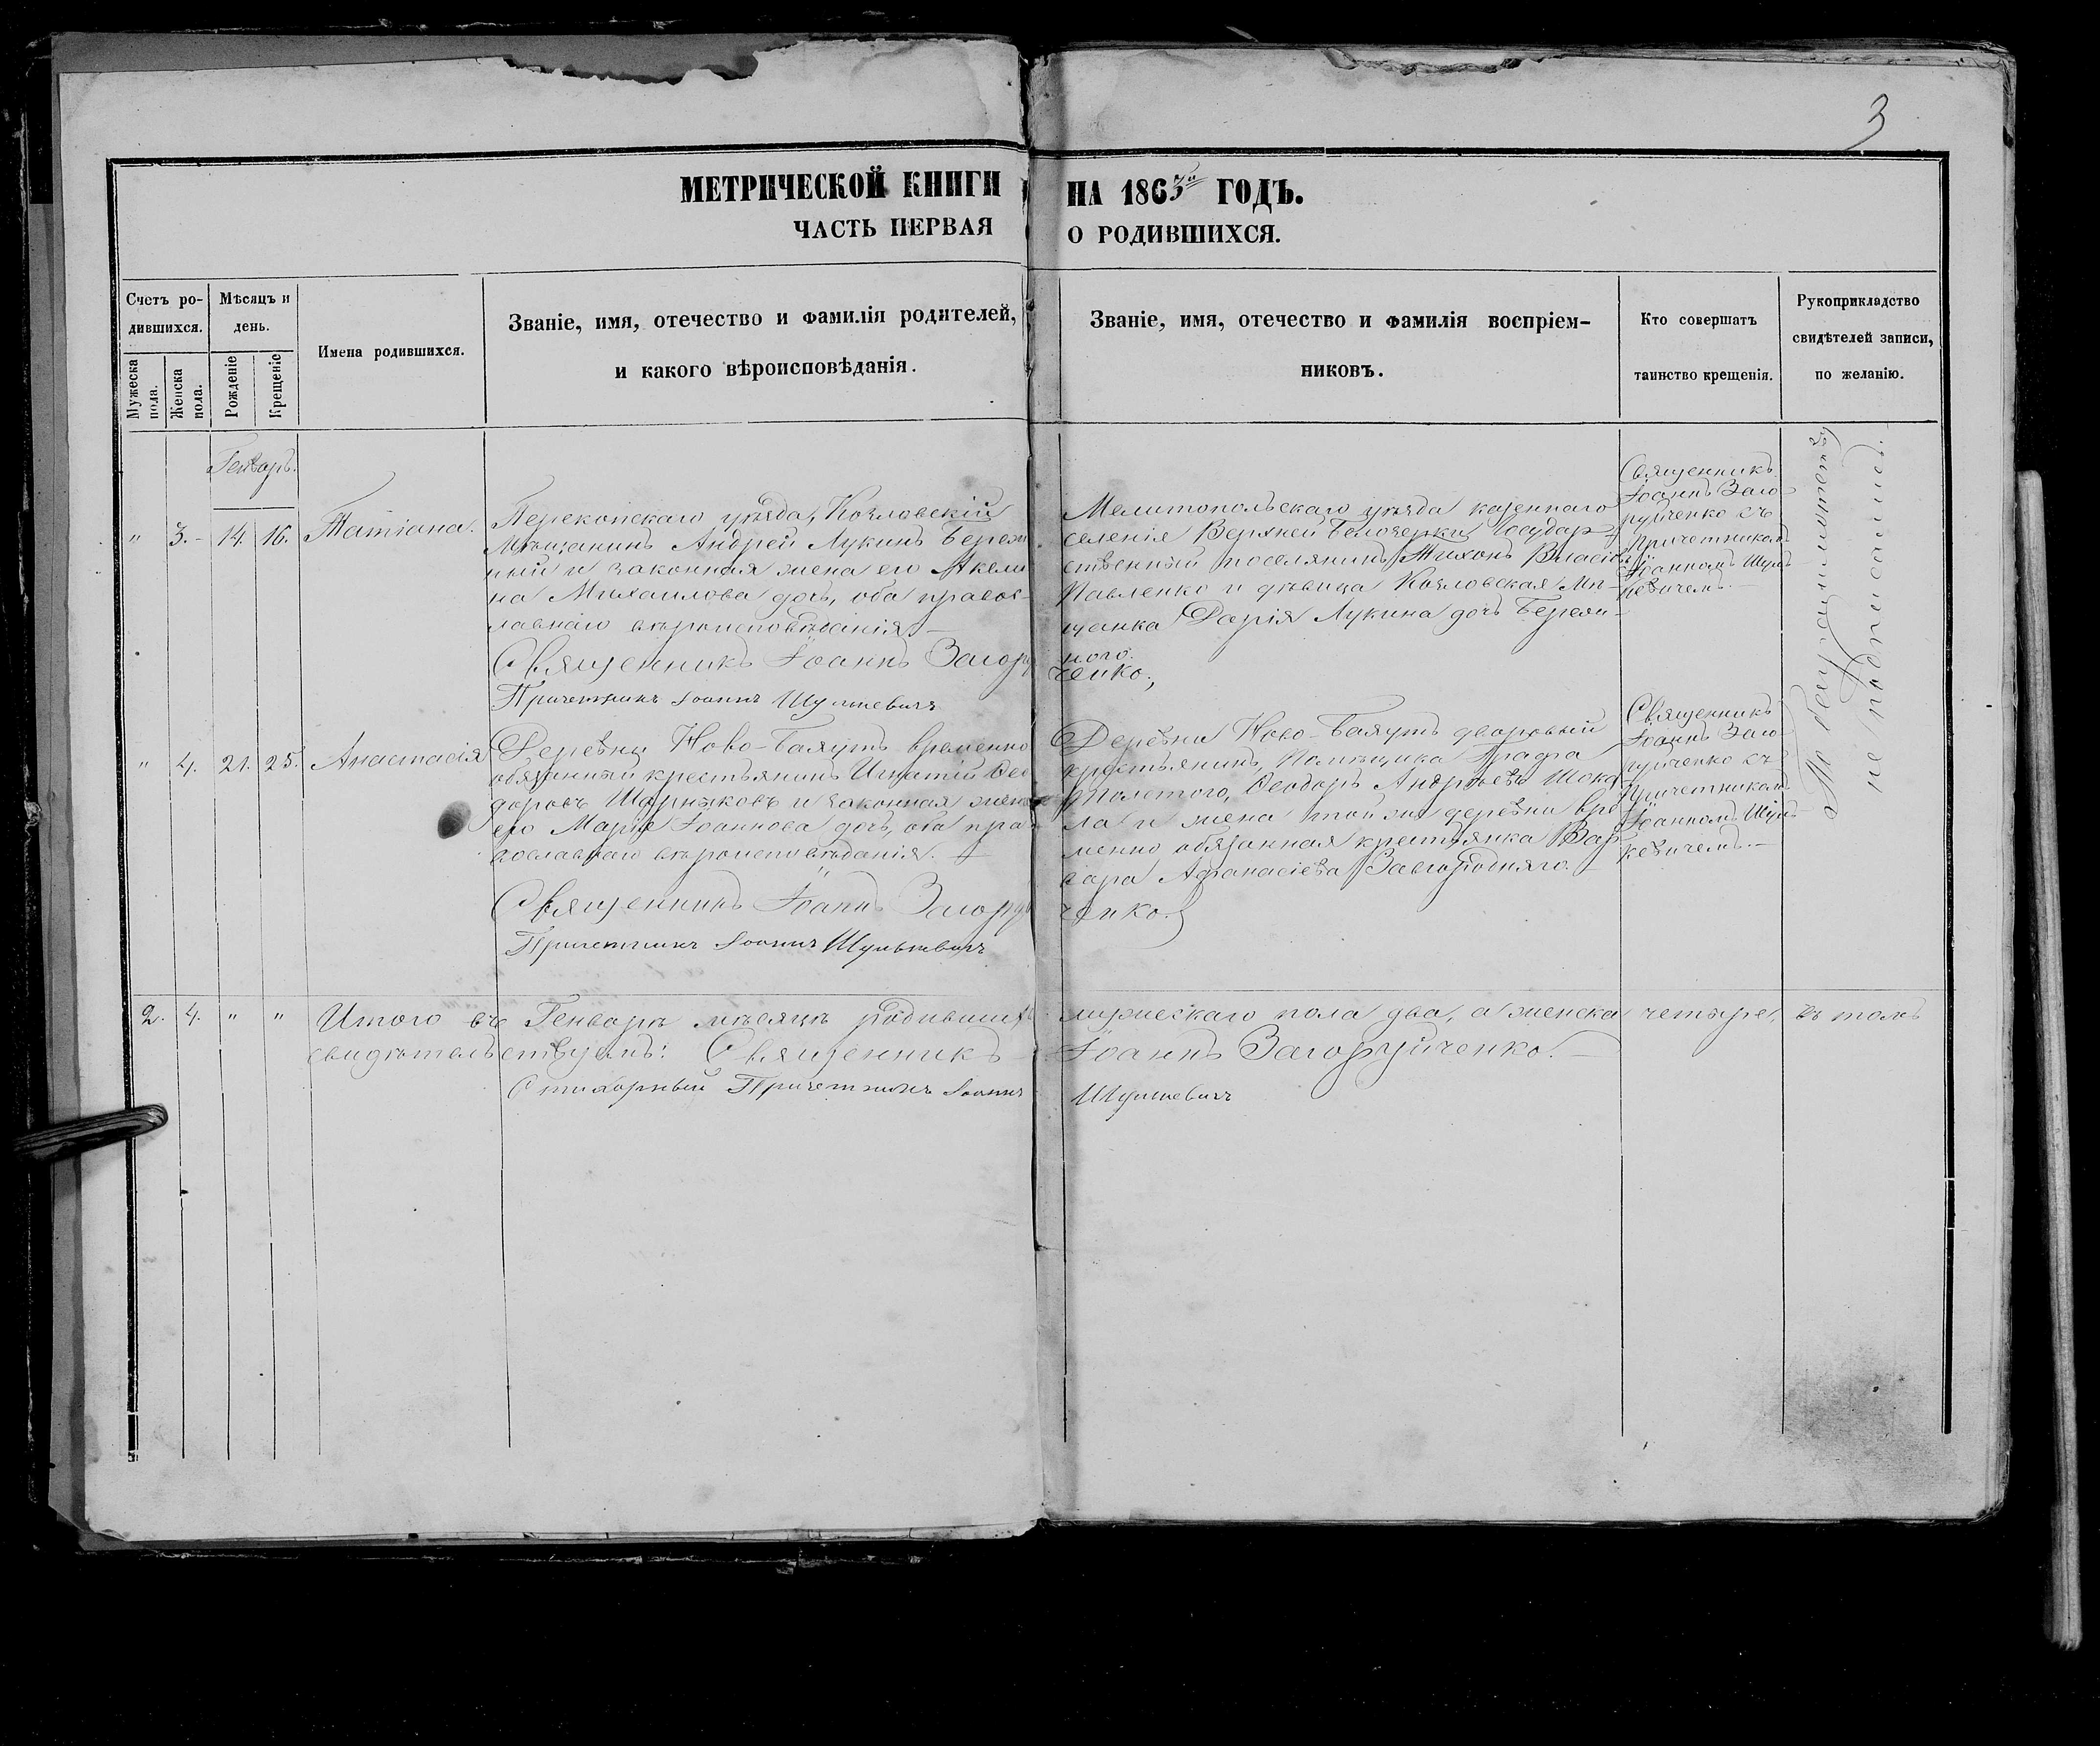 3
МЕТРИЧЕСКОЙ КНИГИ НА 1863й ГОДЪ.
ЧАСТЬ ПЕРВАЯ О РОДИВШИХСЯ.
Счетъ ро-
дившихся.
Мужеска пола.
Женска пола.
Мѣсяцъ и
день.
Рожденіе
Крещеніе
Имена родившихся.
Званіе, имя, отечество и фамилія родителей,
и какого вѣроисповѣданія.
Званіе, имя, отечество и фамилія воспріем-
никовъ.
Кто совершатъ
таинство крещенія.
Рукоприкладство
свидѣтелей записи,
по желанію.
Генварь.
" 3. 14. 16. Татіана.
Перекопскаго уѣзда, Козловскій
Мѣщанинъ Андрей Лукинъ Береж
ный и законная жена его Акели
на Михаилова дочь, оба правос-
лавнаго вѣроисповѣданія.
Священникъ Іоаннъ Загоруй
ченко,
Причетникъ Іоаннъ Шулькевичъ
Мелитопольскаго уѣзда казеннаго
селенія Верхней Белозерки Государ-
ственный поселянинъ Тихонъ Власіевъ
Павленко и дѣвица Козловская Мѣ-
щанка Дарія Лукина дочь Береж-
ного.
Священникъ
Іоаннъ Заго-
руйченко съ
Причетникомъ
Іоанномъ Шуль-
кевичемъ.
" 4. 21. 25. Анастасія
Деревни Ново-Баяутъ временно
обязанный крестьянинъ Игнатій Ѳео
доровъ и законная жена
его Марія Іоаннова дочь, оба пра-
вославнаго вѣроисповѣданія.
Священникъ Іоаннъ Загоруй
ченко.
Причетникъ Іоаннъ Шулькевичъ
Деревни Ново-Баяутъ дворовый
крестьянинъ, Помѣщика Графа
Ѳеодоръ Андреевъ Шока-
ла и жена той же деревни вре
менно обязанная крестьянка Вар-
вара Афанасіева Завгороднего.
Священникъ
Іоаннъ Заго-
руйченко съ
Причетникомъ
Іоанномъ Шуль-
кевичемъ.
не подписались.
2. 4. " " Итого въ Генварѣ мѣсяцѣ родившихся мужескаго пола два, а женска четыре, въ томъ
свидѣтельствуемъ: Священникъ Іоаннъ Загоруйченко.
Стихарный Причетникъ Іоаннъ Шулькевичъ